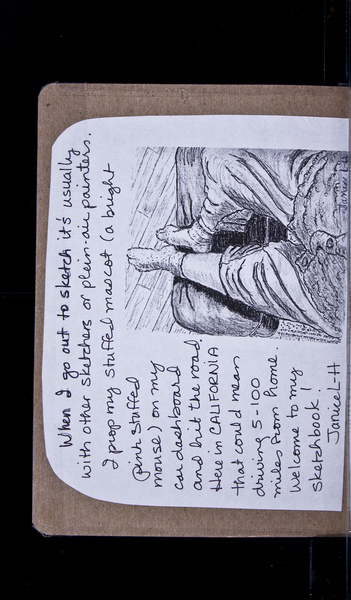 When I go out to sketch it's usually
with other sketchers or plein-air painters.
I prop my stuffed mascot (a bright
pink stuffed
mouse) on my
car dashboard
and hit the road!
Here in CALIFORNIA
that could mean
driving 5-100
miles from home.
Welcome to my
sketchbook!
Janice L-H
Janice L-H